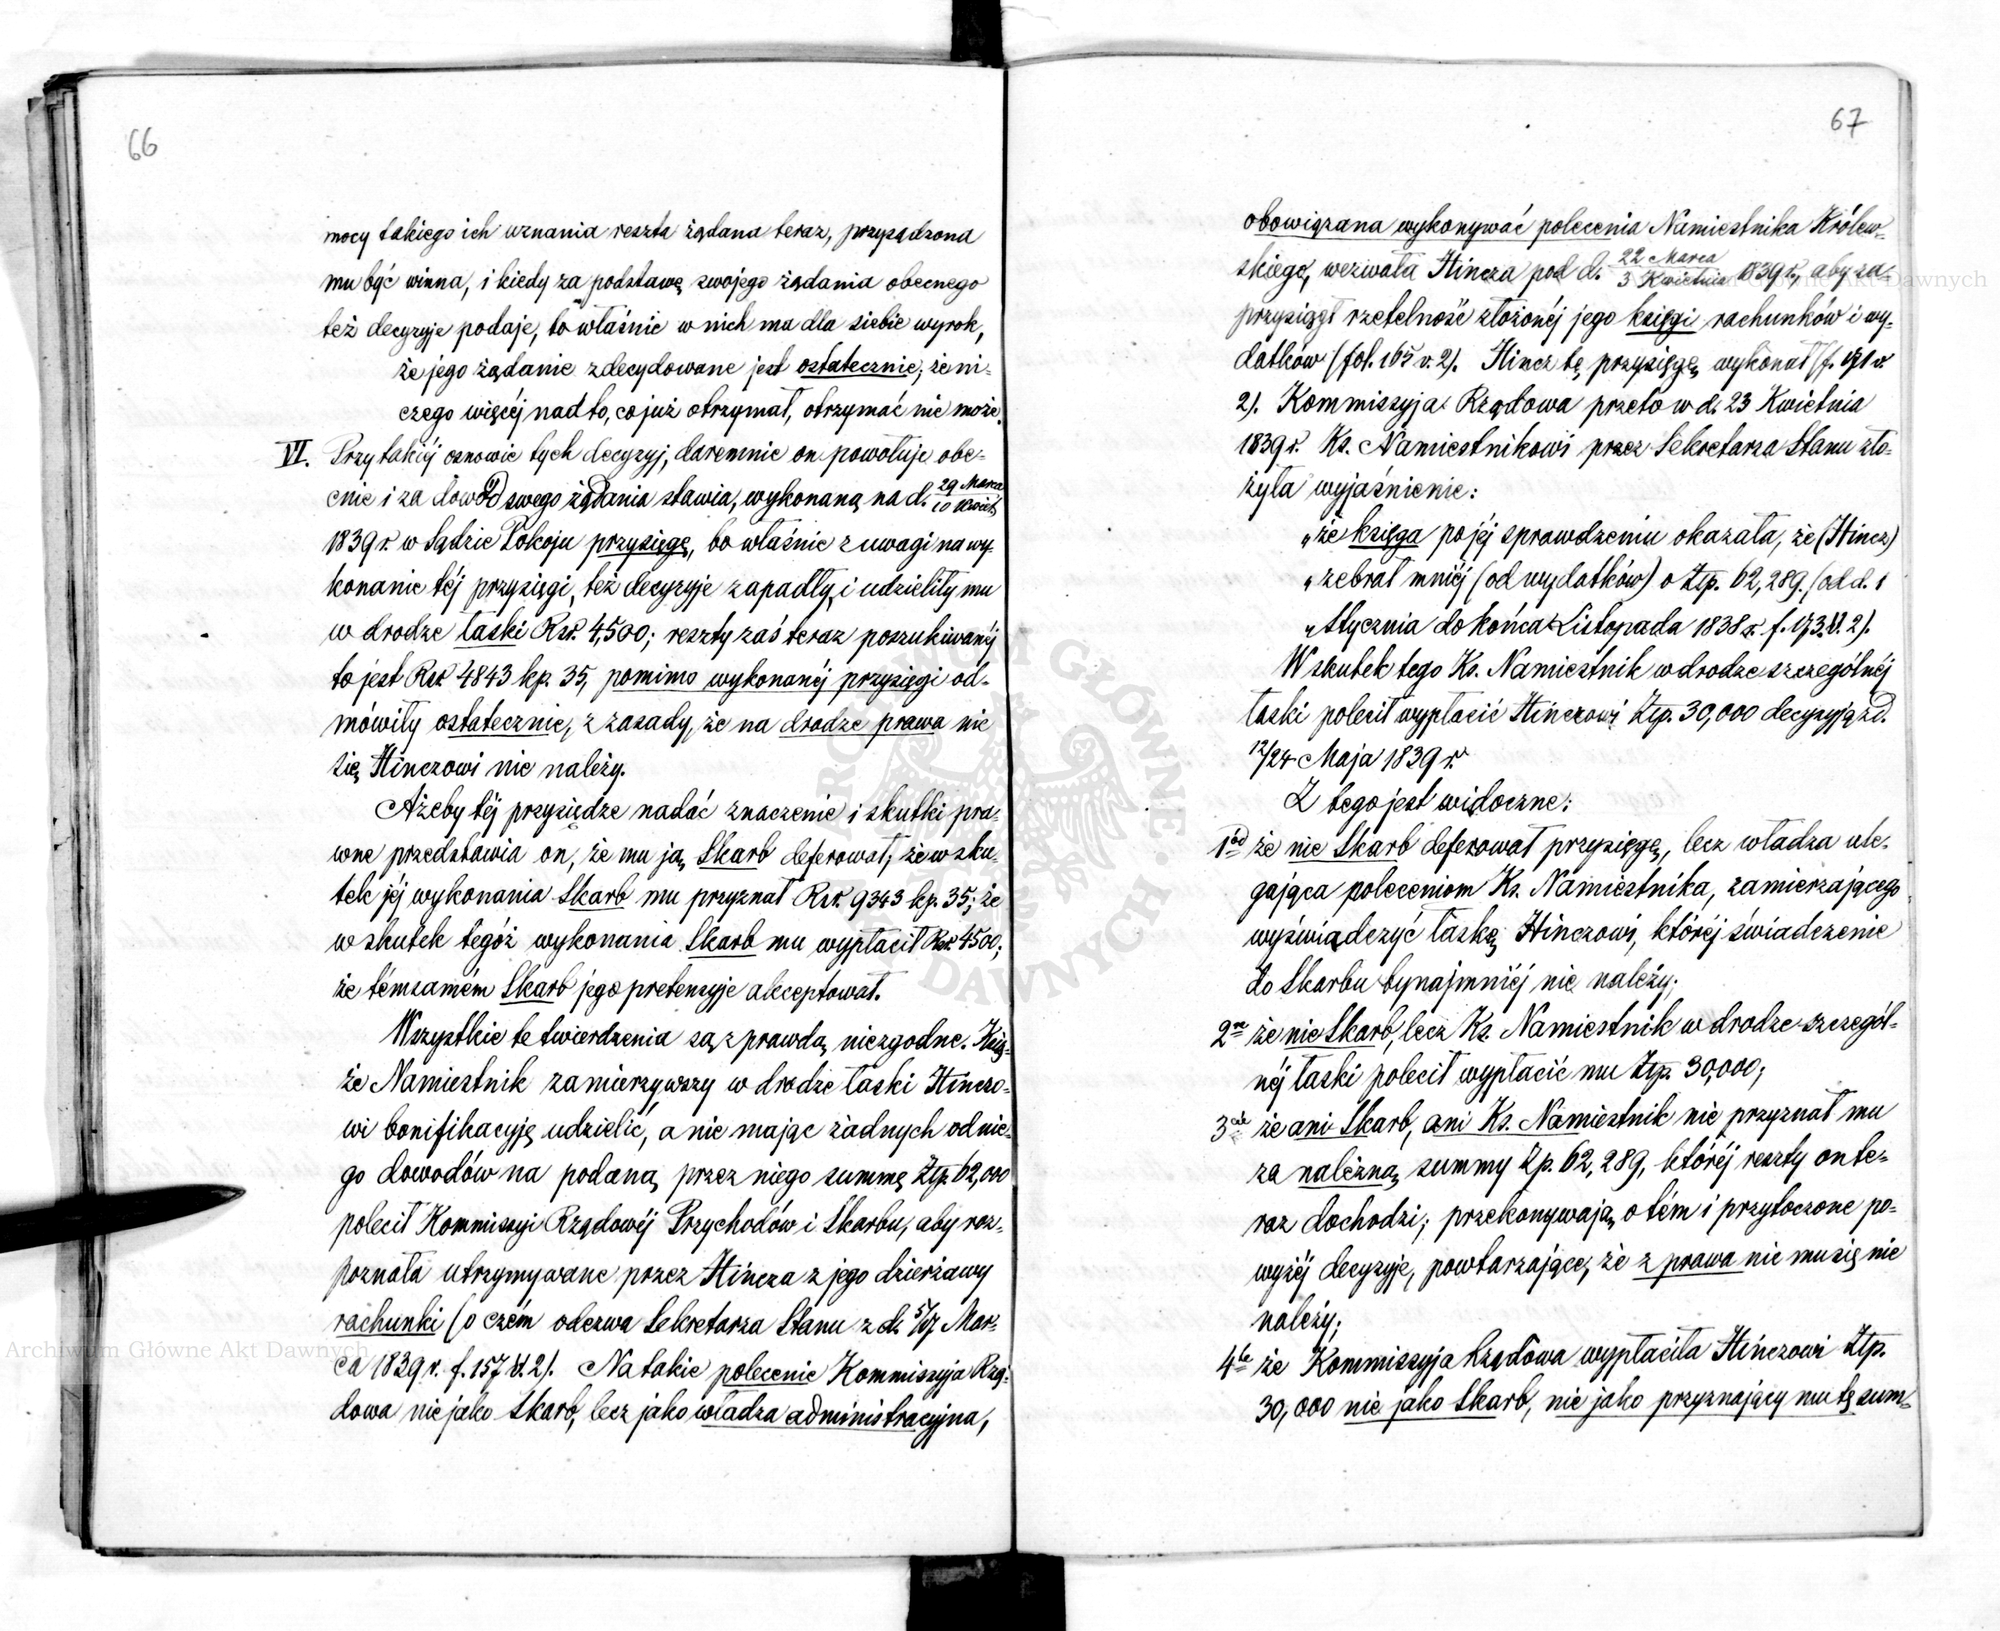 66
mocy takiego ich uznania reszta żądana teraz, przysądzona
mu być winna, i kiedy za podstawę swojego żądania obecnego
też decyzyje podaje, to właśnie w nich ma dla siebie wyrok,
że jego żądanie zdecydowane jest ostatecznie; że ni-
czego więcéj nad to, co już otrzymał, otrzymać nie może.
VI. Przy takiéj osnowie tych decyzyj, daremnie on powołuje obe-
cnie i za dowód swego żądania stawia, wykonaną na d. 29 Marca / 10 Kwiet.
1839 r. w Sądzie Pokoju przysięgę, bo właśnie z uwagi na wy-
konanie téj przysięgi, też decyzyje zapadły, i udzieliły mu
w drodze łaski Rsr. 4,500; reszty zaś teraz poszukiwanéj
to jest Rsr 4843 kp. 35, pomimo wykonanéj przysięgi od-
mówiły ostatecznie, z zasady, że na drodze prawa nic
się Hinczowi nie należy.
Ażeby téj przysiędze nadać znaczenie i skutki pra-
wne przedstawia on, że mu ją Skarb deferował; że w sku-
tek jéj wykonania Skarb mu przyznał Rsr. 9343 kp. 35; że
w skutek tegóż wykonania Skarb mu wypłacił Rsr 4500;
że témsamém Skarb jego pretensyje akceptował.
Wszystkie te twierdzenia są z prawdą niezgodne. Ksią-
że Namiestnik zamierzywszy w drodze łaski Hinczo-
wi bonifikacyję udzielić, a nie mając żadnych od nie-
go dowodów na podaną przez niego summę Złp. 62,000
polecił Kommissyi Rządowéj Przychodów i Skarbu, aby roz-
poznała utrzymywane przez Hincza z jego dzierżawy
rachunki (o czém odezwa Sekretarza Stanu z d. 5/17 Mar-
ca 1839 r. f. 157 V. 2). Na takie polecenie Kommissyja Rzą-
dowa nie jako Skarb, lecz jako władza administracyjna,
67
obowiązana wykonywać polecenia Namiestnika Królew-
skiego, wezwała Hincza pod d. 22 Marca / 3 Kwietnia 1839 r., aby za-
przysiągł rzetelność złożonéj jego księgi rachunków i wy-
datków (fol. 165 v. 2). Hincz tę przysięgę wykonał (f. 171 v.
2). Kommissyja Rządowa przeto w d. 23 Kwietnia
1839 r. Ks. Namiestnikowi przez Sekretarza Stanu zło-
żyła wyjaśnienie:
„że księga po jéj sprawdzeniu okazała, że (Hincz)
„zebrał mniéj (od wydatków) o Złp. 62,289. (od d. 1
„Stycznia do końca Listopada 1838 r. f. 173. V. 2).
W skutek tego Ks. Namiestnik w drodze szczególnéj
łaski polecił wypłacić Hinczowi Złp. 30,000 decyzyją z d.
12/24 Maja 1839 r.
Z tego jest widoczne:
1ód że nie Skarb deferował przysięgę, lecz władza ule-
gająca poleceniom Ks. Namiestnika, zamierzającego
wyświadczyć łaskę Hinczowi, któréj świadczenie
do Skarbu bynajmniéj nie należy;
2re że nie Skarb, lecz Ks. Namiestnik w drodze szczegól-
néj łaski polecił wypłacić mu Złp. 30,000;
3cie że ani Skarb, ani Ks. Namiestnik nie przyznał mu
za należną summy Zp. 62,289, któréj reszty on te-
raz dochodzi; przekonywają o tém i przytoczone po-
wyżéj decyzyje, powtarzające, że z prawa nic mu się nie
należy;
4te że Kommissyja Rządowa wypłaciła Hinczowi Złp.
30,000 nie jako Skarb, nie jako przyznający mu tę sum-
Archiwum Główne Akt Dawnych